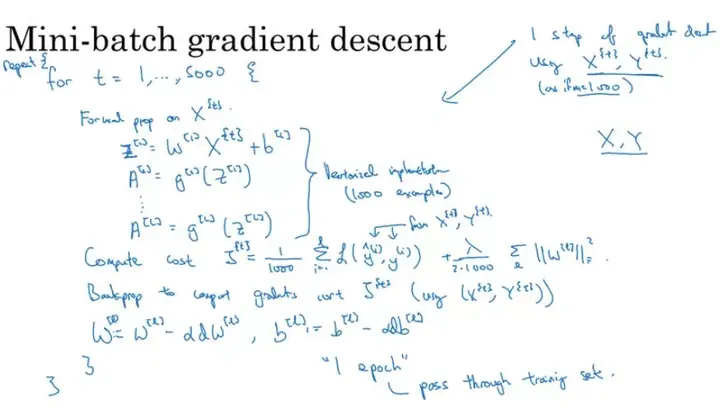 Mini-batch gradient descent
repeat {
for t = 1, ..., 5000 {
Forward prop on X^{t}.
Z^[1] = W^[1] X^{t} + b^[1]
A^[1] = g^[1](Z^[1])
⋮
A^[L] = g^[L](Z^[L])
Vectorized implementation
(1000 examples)
1 step of gradient descent
using X^{t}, Y^{t}.
(as if m=1000)
X, Y
from X^{t}, Y^{t}.
Compute cost J^{t} = 1/1000 Σ_{i=1}^{l} L(ŷ^(i), y^(i)) + λ/(2·1000) Σ_l ||W^[l]||_F^2.
Backprop to compute gradients wrt J^{t} (using (X^{t}, Y^{t}))
W^[l] := W^[l] - αdW^[l], b^[l] := b^[l] - αdb^[l]
}
}
"1 epoch"
pass through training set.